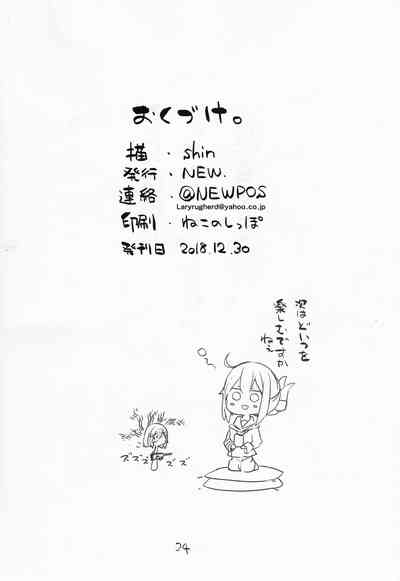 おくづけ。
描・shin
発行・NEW.
連絡・@NEWPOS
Laryrugherd@yahoo.co.jp
印刷・ねこのしっぽ
発刊日 2018.12.30
次はどいつを
楽しむですか
ねぇ
ズズズズズ
24